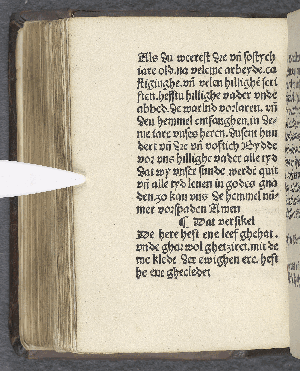 Als du weerest dre vn̄ sostych
iare old. na velewe arbeyde. ca
stigiughe. vn̄ velen hillighē scri
fften. hefstu hillighe vader vnde
abbed. de werlnd vorlaren. vn̄
den hemmel entfanghen, in de⸗
me iare vnses heren. dusent hun
dert vn̄ dre vn̄ voftich Bydde
vor vns hillighe vader alle tyd
dat wy vnser sunde werde quit
vn̄ alle tyd leuen in godes gna
den. zo kan vns de hemmel nū⸗
mer vorspaden Amen
¶ Dat versikel
De here heft ene leef ghehat.
vnde ghar wol ghetziret. mit de
me klede der ewighen ere. heft
he ene ghecledet